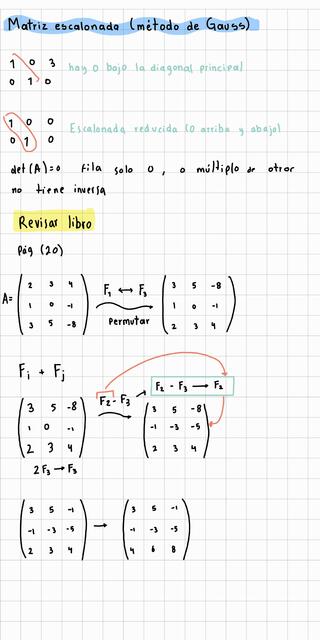 Matriz escalonada (método de Gauss)
1 0 3
0 1 0
hay 0 bajo la diagonal principal
1 0 0
0 1 0
Escalonada reducida (0 arriba y abajo)
det(A)=0 fila solo 0, o múltiplo de otror
no tiene inversa
Revisar libro
Pág (20)
A= 2 3 4
1 0 -1
3 5 -8
F₁ ↔ F₃
permutar
3 5 -8
1 0 -1
2 3 4
Fi + Fj
3 5 -8
1 0 -1
2 3 4
F₂ - F₃ →
F₂ - F₃ → F₂
3 5 -8
-1 -3 -5
2 3 4
2F₃ → F₃
3 5 -1
-1 -3 -5
2 3 4
→
3 5 -1
-1 -3 -5
4 6 8